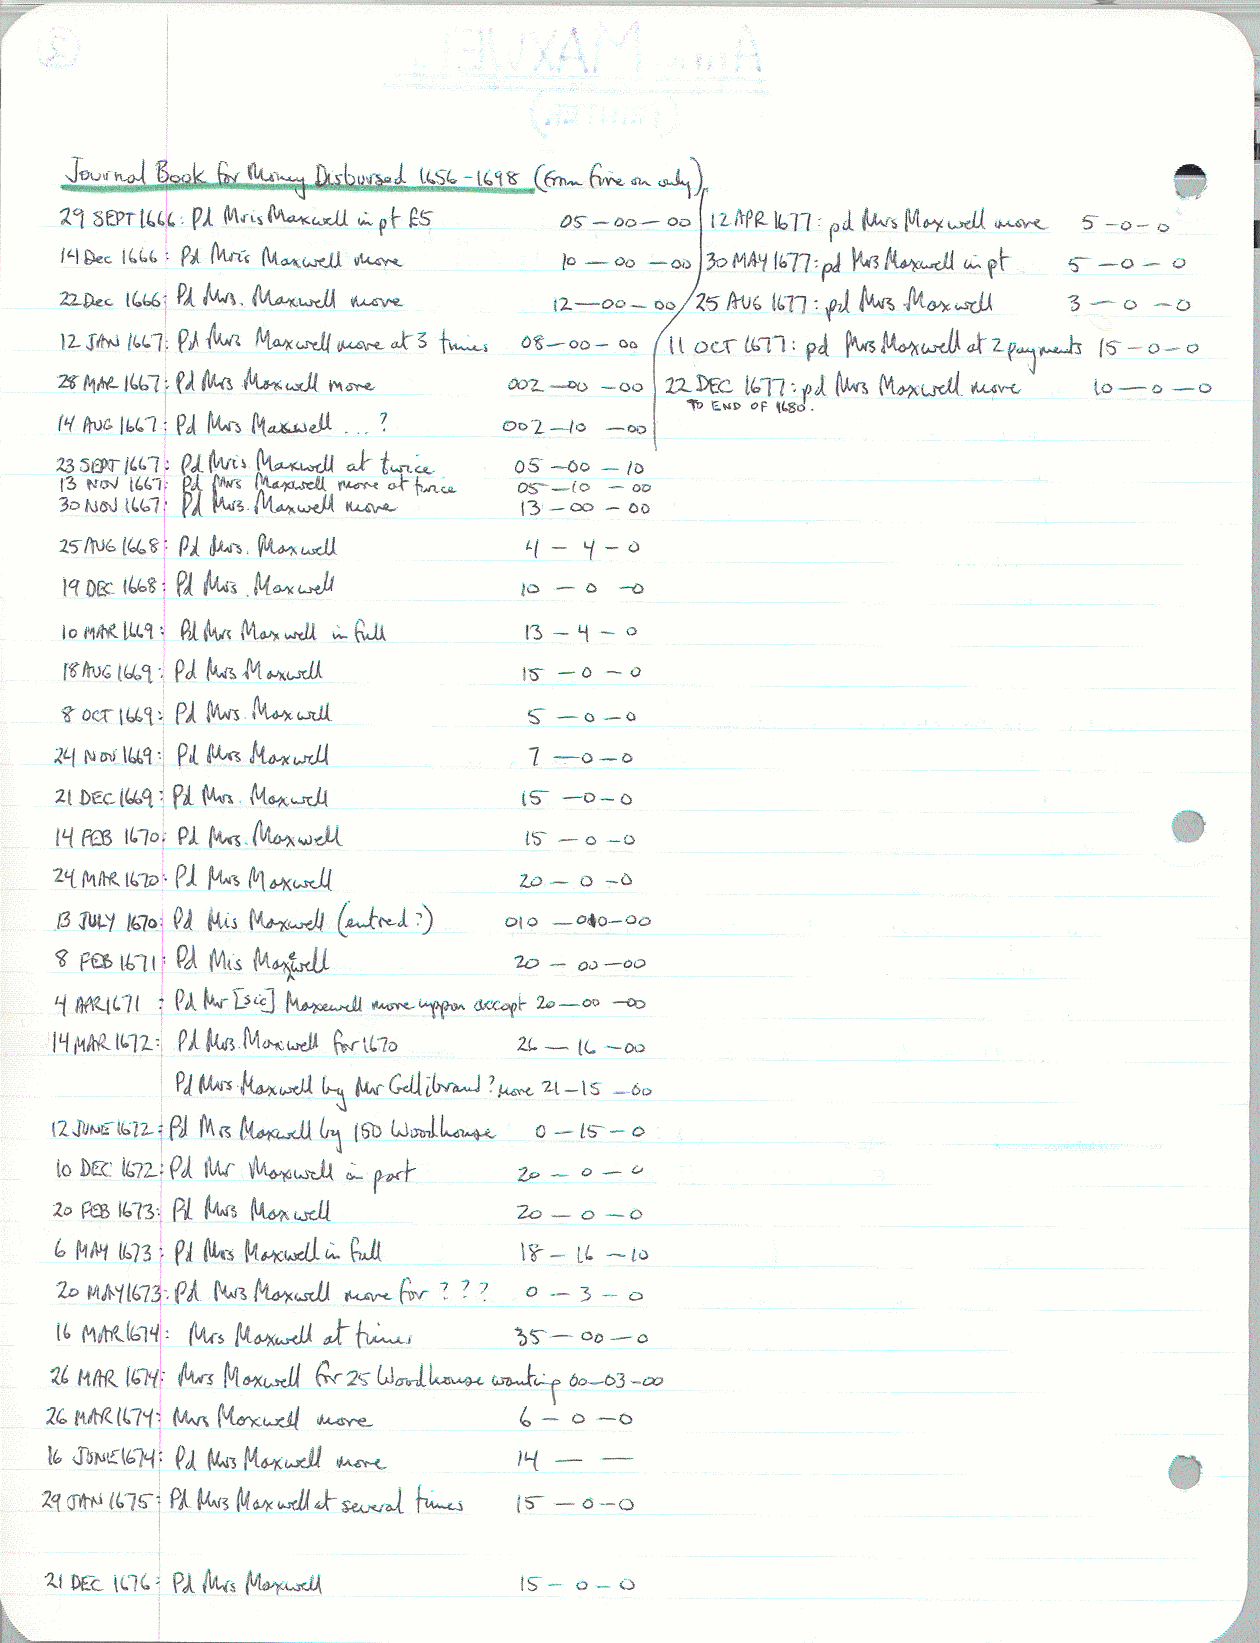 Journal Book for Money Disbursed 1656-1698 (From Fire on only)
29 SEPT 1666: Pd Mris Maxwell in pt £5 05-00-00
14 Dec 1666: Pd Mris Maxwell more 10-00-00
22 Dec 1666: Pd Mrs. Maxwell more 12-00-00
12 JAN 1667: Pd Mrs Maxwell more at 3 times 08-00-00
28 MAR 1667: Pd Mrs Maxwell more 002-00-00
14 AUG 1667: Pd Mrs Maxwell ...? 002-10-00
23 SEPT 1667: Pd Mris Maxwell at twice 05-00-10
13 NOV 1667: Pd Mrs Maxwell more at twice 05-10-00
30 NOV 1667: Pd Mrs. Maxwell more 13-00-00
25 AUG 1668: Pd Mrs. Maxwell 4-4-0
19 DEC 1668: Pd Mrs. Maxwell 10-0-0
10 MAR 1669: Pd Mrs Maxwell in full 13-4-0
18 AUG 1669: Pd Mrs Maxwell 15-0-0
8 OCT 1669: Pd Mrs. Maxwell 5-0-0
24 NOV 1669: Pd Mrs Maxwell 7-0-0
21 DEC 1669: Pd Mrs. Maxwell 15-0-0
14 FEB 1670: Pd Mrs. Maxwell 15-0-0
24 MAR 1670: Pd Mrs Maxwell 20-0-0
13 JULY 1670: Pd Mis Maxwell (entred?) 010-010-00
8 FEB 1671: Pd Mis Maxewell 20-00-00
4 APR 1671: Pd Mr [sic] Maxewell more uppon accopt 20-00-00
14 MAR 1672: Pd Mrs. Maxwell for 1670 26-16-00
Pd Mrs. Maxwell by Mr Gellibrand? more 21-15-00
12 JUNE 1672: Pd Mrs Maxwell by 150 Woodhouse 0-15-0
10 DEC 1672: Pd Mr Maxwell in part 20-0-0
20 FEB 1673: Pd Mrs Maxwell 20-0-0
6 MAY 1673: Pd Mrs Maxwell in full 18-16-10
20 MAY 1673: Pd Mrs Maxwell more for ??? 0-3-0
16 MAR 1674: Mrs Maxwell at times 35-00-0
26 MAR 1674: Mrs Maxwell for 25 Woodhouse wanting 00-03-00
26 MAR 1674: Mrs Maxwell more 6-0-0
16 JUNE 1674: Pd Mrs Maxwell more 14 — —
29 JAN 1675: Pd Mrs Maxwell at several times 15-0-0
21 DEC 1676: Pd Mrs Maxwell 15-0-0
12 APR 1677: pd Mrs Maxwell more 5-0-0
30 MAY 1677: pd Mrs Maxwell in pt 5-0-0
25 AUG 1677: pd Mrs. Maxwell 3-0-0
11 OCT 1677: pd Mrs Maxwell at 2 payments 15-0-0
22 DEC 1677: pd Mrs Maxwell more 10-0-0
TO END OF 1680.